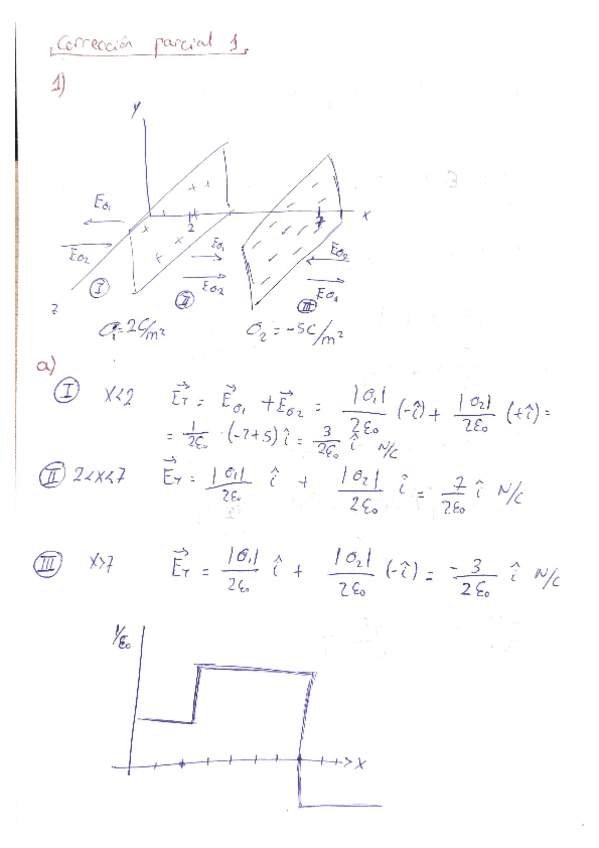 Corrección parcial 1.
1)
y
Eσ₁
Eσ₂
2
Eσ₁
Eσ₂
7
x
Eσ₂
Eσ₁
z
I
II
III
σ₁=2C/m²
σ₂ = -5C/m²
a)
I x<2 E⃗_T = E⃗σ₁ + E⃗σ₂ = |σ₁|/2ε₀ (-î) + |σ₂|/2ε₀ (+î) =
= 1/2ε₀ · (-2+5) î = 3/2ε₀ î N/C
II 2<x<7 E⃗_T = |σ₁|/2ε₀ î + |σ₂|/2ε₀ î = 7/2ε₀ î N/C
III x>7 E⃗_T = |σ₁|/2ε₀ î + |σ₂|/2ε₀ (-î) = -3/2ε₀ î N/C
1/ε₀
x